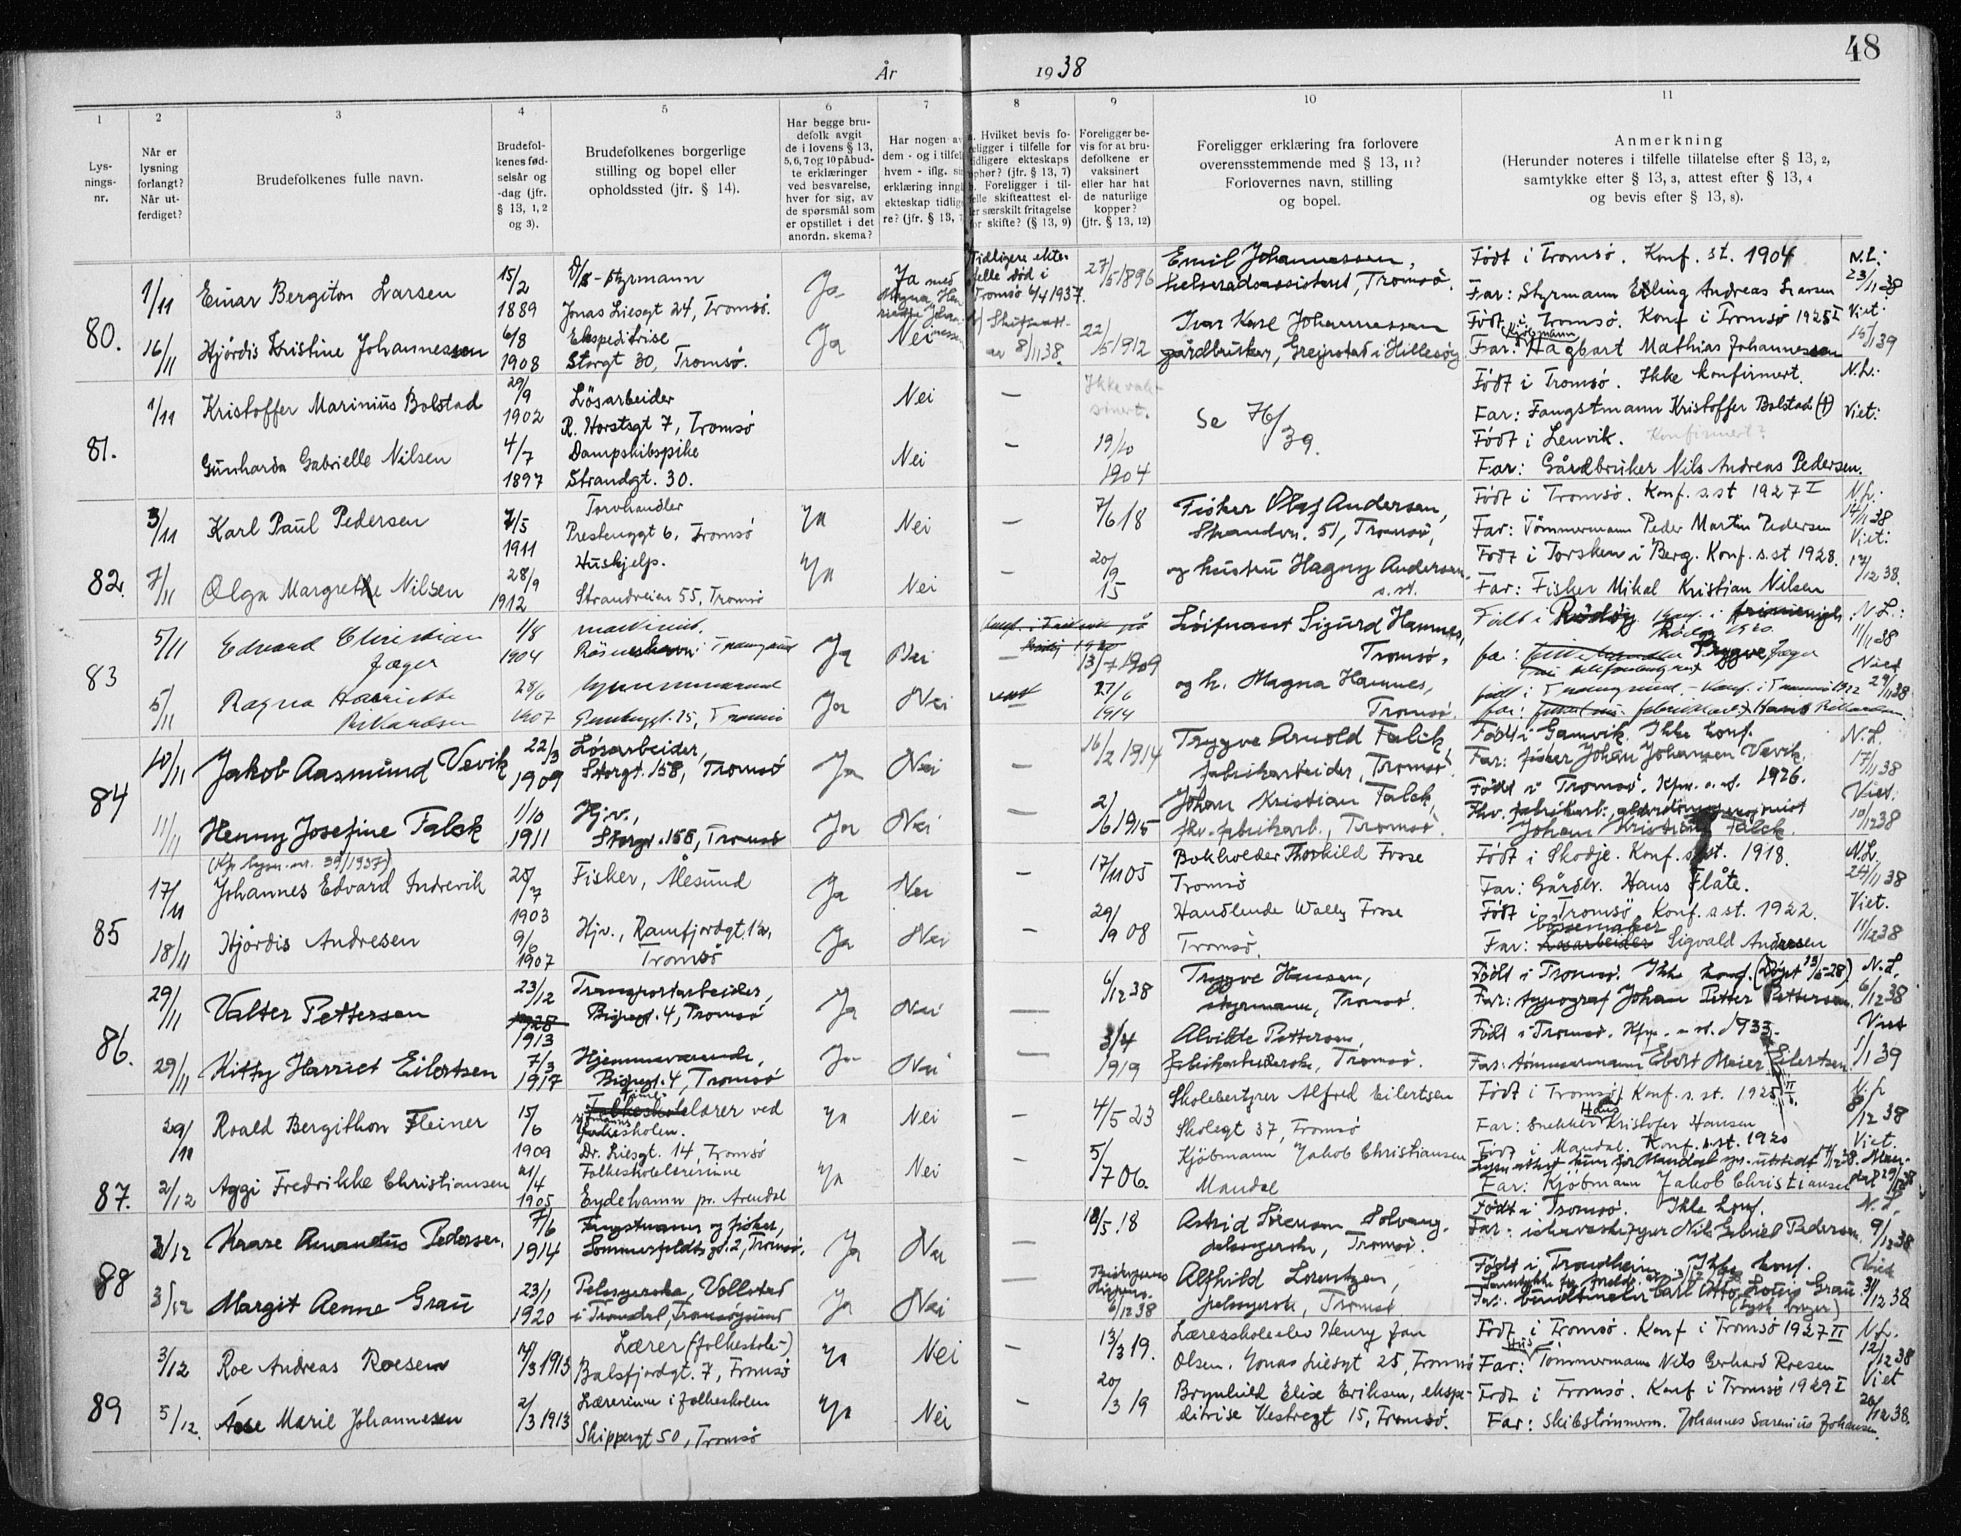 48
År 1938
1 2 3 4 5 6 7 8 9 10 11
Lys-
nings-
nr.
Når er
lysning
forlangt?
Når ut-
ferdiget?
Brudefolkenes fulle navn.
Brudefol-
kenes fød-
selsår og
-dag (jfr.
§ 13, 1, 2
og 3).
Brudefolkenes borgerlige
stilling og bopel eller
opholdssted (jfr. § 14).
Har begge bru-
defolk avgit
de i lovens § 13,
5, 6, 7 og 10 påbud-
te erklæringer
ved besvarelse,
hver for sig, av
de spørsmål som
er opstillet i det
anordn. skema?
Har nogen av
dem - og i tilfel
hvem - iflg. si
erklæring inng
ekteskap tidlig
re? (jfr. § 13, 7
. Hvilket bevis fo-
eligger i tilfelle for
idligere ekteskaps
phør? (jfr. § 13, 7)
. Foreligger i til-
elle skifteattest el-
er særskilt fritagelse
or skifte? (§ 13, 9)
Foreligger be-
vis for at bru-
defolkene er
vaksinert
eller har hat
de naturlige
kopper?
(jfr. § 13, 12)
Foreligger erklæring fra forlovere
overensstemmende med § 13, 11?
Forlovernes navn, stilling
og bopel.
Anmerkning
(Herunder noteres i tilfelle tillatelse efter § 13, 2,
samtykke efter § 13, 3, attest efter § 13, 4
og bevis efter § 13, 8).
80.
1/11 Einar Bergiton Larsen 15/2 1889
D/S-styrmann
Jonas Liesgt 24, Tromsø.
Ja Ja med
Magna Hen-
Tidligere ekte-
felle død i
Tromsø 6/4 1937.
27/5 1896
Emil Johannessen,
helseradsassistent, Tromsø.
Født i Tromsø. Konf. st. 1904
Far: Styrmann Erling Andreas Larsen
N.L:
23/11 38
Viet:
15/1 39
16/11 Hjørdis Kristine Johannessen 6/8 1908
Ekspeditrise
Storgt 30, Tromsø.
Ja Nei
8/11 38.
22/5 1912
Ivar Karl Johannessen
gårdbruker, Greipstad i Hillesøy
Født i Tromsø. Konf i Tromsø 1923 I
Far: Hagbart Mathias Johannessen
81.
1/11 Kristoffer Marinius Bolstad 29/9 1902
Løsarbeider
R. Horstsgt 7, Tromsø
Nei —
Ikke vak-
sinert.
Se 76/39.
Født i Tromsø. Ikke konfirmert.
Far: Fangstmann Kristoffer Bolstad (†)
N.L.
Viet:
Gunharda Gabrielle Nilsen 4/7 1897
Dampskibspike
Strandgt. 30.
Nei —
19/10 1904
Født i Lenvik. Konfirmert?
Far: Gårdbruker Nils Andreas Pedersen.
82.
3/11 Karl Paul Pedersen 7/5 1911
Torvhandler
Prestenggt 6, Tromsø
Ja Nei —
7/6 18
Fisker Olaf Andersen,
Strandvn. 51, Tromsø,
Født i Tromsø. Konf. s.st 1927 I
Far: Tømmermann Peder Martin Pedersen
N.L.:
14/11 38
Viet:
17/12 38.
7/11 Olga Margrethe Nilsen 28/9 1912
Hushjelp.
Strandveien 55, Tromsø
Ja Nei —
20/9 15
og hustru Hagny Andersen
s.st.
Født i Torsken i Berg. Konf. s.st 1928.
Far: Fisker Mikal Kristian Nilsen
83
5/11 Edvard Christian
Jæger
1/8 1904
maskinist.
Ja Nei —
13/7 1909
Løitnant Sigurd Hamnes,
Tromsø.
Født i Rødøy
far: Trygve Jæger
N.L.:
11/11 38
Viet
29/11 38
5/11 Ragna Harriette
Rikardsen
28/6 1907
Ja Nei
27/6 1914
og h. Magna Hamnes,
Tromsø.
84
10/11 Jakob Aasmund Vevik 22/3 1909
Løsarbeider,
Storgt. 158, Tromsø
Ja Nei —
16/2 1914
Trygve Arnold Falck
fabrikarbeider, Tromsø.
Født i Gamvik. Ikke konf.
Far: fisker Johan Johansen Vevik.
N.L.
17/11 38
Viet:
10/12 38
11/11 Henny Josefine Falck 1/10 1911
Hjv.,
Storgt. 158, Tromsø
Ja Nei —
2/6 1915
Johan Kristian Falck,
fhv. fabrikarb., Tromsø.
Født i Tromsø. Kfm. s. st. 1926.
Johan Kristian Falck.
85
(Kfr lysn. nr. 39/1937)
17/11 Johannes Edvard Indrevik 25/7 1903
Fisker, Ålesund
Ja Nei —
17/11 05
Bokholder Thorkild Fosse
Tromsø
Født i Skodje. Konf. s.st. 1918.
Far: Gårdbr. Hans Flåte.
N.L.
24/11 38
Viet.
11/12 38
18/11 Hjørdis Andresen 9/6 1907
Hjv., Ramfjordgt. 12,
Tromsø
Ja Nei —
29/9 08
Handlende Wally Fosse
Tromsø.
Født i Tromsø Konf. s.st. 1922.
bøssemaker
Far: Løsarbeider Sigvald Andresen
86.
29/11 Valter Pettersen 23/12
1928
1913
Transportarbeider,
Bispegt. 4, Tromsø
Ja Nei —
6/12 38
Trygve Hansen,
styrmann, Tromsø.
Født i Tromsø. Ikke konf. (Døpt 13/5-28)
Far: typograf Johan Petter Pettersen.
N.L.
6/12 38
Viet
1/1 39
29/11 Kitty Harriet Eilertsen 7/3 1917
Hjemmeværende,
Bispegt. 4, Tromsø
Ja Nei —
3/4 1919
Alvilde Pettersen,
fabrikarbeiderske, Tromsø.
Født i Tromsø. Kfm. s. st. 1933.
Far: tømmermann Ebert Meier Eilertsen
87.
29/11 Roald Bergithon Fleiner 15/6 1909
Folkeskolelærer ved
Dr. Liesgt. 14, Tromsø
Ja Nei —
4/5 23
Skolebestyrer Alfred Eilertsen
Skolegt 37, Tromsø
Født i Tromsø, Konf. s. st. 1925 II
Far: Snekker Kristofer Hansen
8/12 38
Viet.
2/12 Aggi Fredrikke Christiansen 21/4 1905
Folkeskolelærerinne
Eydehamn pr. Arendal
Ja Nei —
5/7 06
Kjøbmann Jakob Christiansen
Mandal
Født i Mandal. Konf. s.st. 1920
Far: Kjøbmann Jakob Christiansen
88
2/12 Kåre Amandus Pedersen 7/6 1914
Fangstmann og fisker,
Sommerfeldtsgt. 2, Tromsø.
Ja Nei —
18/5 18
Astrid Sørensen Solvang,
pelssyerske, Tromsø.
Født i Tromsø. Ikke konf.
Far: ishavsskipper Nils Gabriel Pedersen.
N.L.
9/12 38
Viet
31/12 38
3/12 Margit Aenne Grau 23/1 1920
Pelssyerske, Vollstad
i Tromsdal, Tromsøysund
Ja Nei —
6/12 38
Alfhild Lorentzen,
pelssyerske, Tromsø
Født i Trondheim. Ikke konf.
(tysk borger)
89
3/12 Roe Andreas Roesen 14/3 1913
Lærer (folkeskole-)
Balsfjordgt. 7, Tromsø
Ja Nei —
13/3 19.
Lærerskoleelev Henry Jan
Olsen. Jonas Liesgt 25, Tromsø
Født i Tromsø. Konf i Tromsø 1927 II
Far: Tømmermann Nils Gerhard Roesen
N.L.
12/12 38
Viet
26/12 38.
5/12. Åse Marie Johannesen 2/3 1913
Lærerinne i folkeskolen
Skippergt 50, Tromsø
Ja Nei —
20/3 19
Brynhild Elise Eriksen, ekspe-
ditrise Vestregt 15, Tromsø.
Født i Tromsø. Konf i Tromsø 1929 I
Far: Skibstømmerm. Johannes Sarenius Johansen.